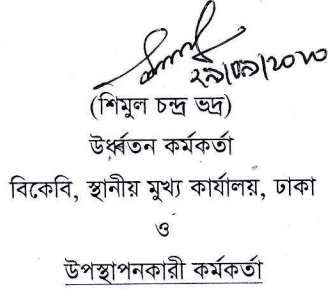 ২৯/০৯/২০২০
(শিমুল চন্দ্র ভদ্র)
উর্ধ্বতন কর্মকর্তা
বিকেবি, স্থানীয় মুখ্য কার্যালয়, ঢাকা
ও
উপস্থাপনকারী কর্মকর্তা